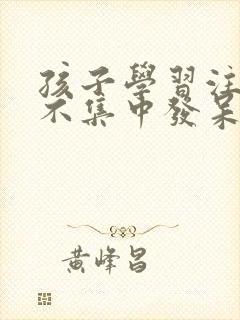 孩子學習注
不集中發呆
黃峰昌